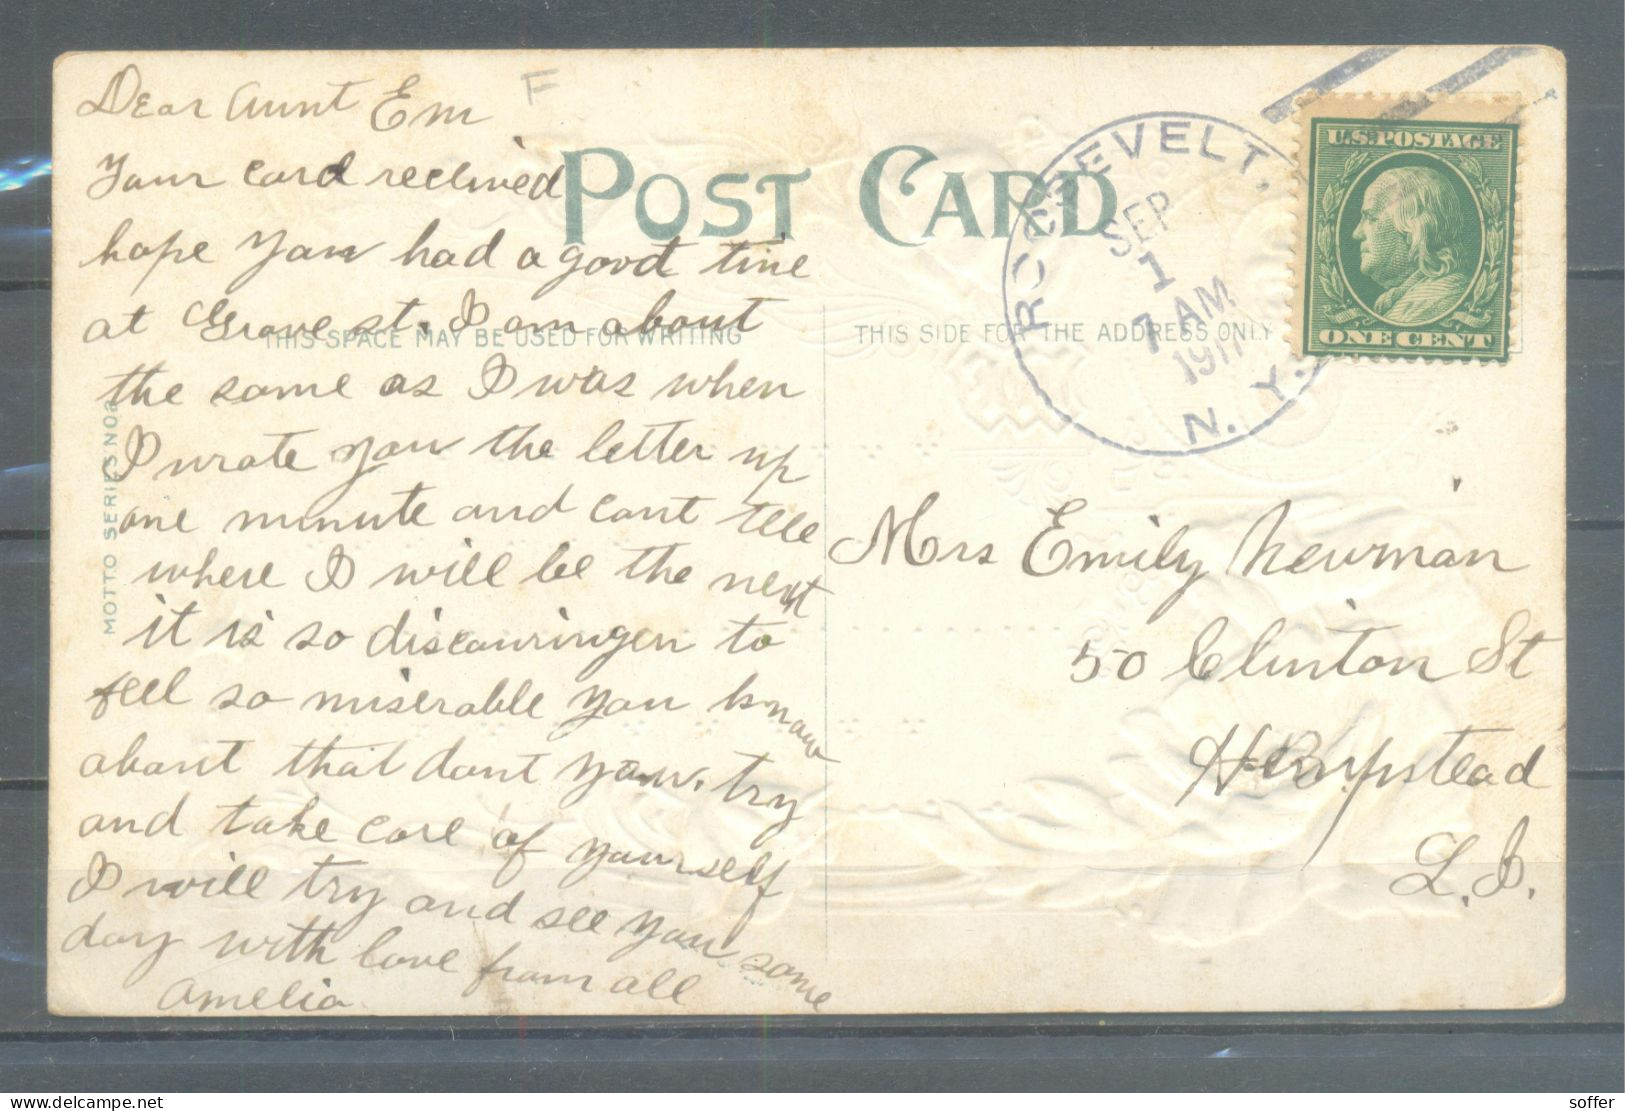 Dear Aunt Em
F
Your card recieved
hope you had a good time
at Grove st. I am about
the same as I was when
I wrote you the letter up
one minute and cant tell
where I will be the next
it is so discouringen to
feel so miserable you know
about that dont you. try
and take care of yourself
I will try and see you some
day with love from all
Amelia
POST CARD
THIS SPACE MAY BE USED FOR WRITING
THIS SIDE FOR THE ADDRESS ONLY
MOTTO SERIES NO
ROOSEVELT,
SEP
1
7 AM
1911
N. Y.
U.S. POSTAGE
ONE CENT
Mrs Emily Newman
50 Clinton St
Hempstead
L.I.
soffer
delcampe.net